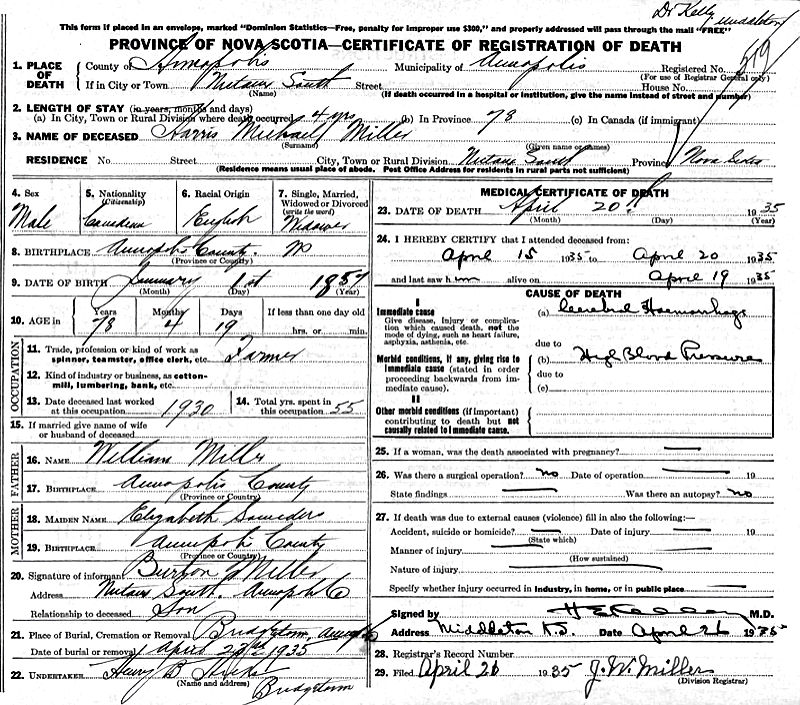 Dr Kelly
Middleton
This form if placed in an envelope, marked "Dominion Statistics—Free, penalty for improper use $300," and properly addressed will pass through the mail "FREE"
PROVINCE OF NOVA SCOTIA—CERTIFICATE OF REGISTRATION OF DEATH
1. PLACE OF DEATH County of Annapolis Municipality of Annapolis Registered No. 519
(For use of Registrar General only)
If in City or Town Nictaux South Street House No.
(Name) (If death occurred in a hospital or institution, give the name instead of street and number)
2. LENGTH OF STAY (in years, months and days)
(a) In City, Town or Rural Division where death occurred 4 yrs (b) In Province 78 (c) In Canada (if immigrant)
3. NAME OF DECEASED Harris Michael Miller
(Surname) (Given name or names)
RESIDENCE No. Street City, Town or Rural Division Nictaux South Province Nova Scotia
(Residence means usual place of abode. Post Office Address for residents in rural parts not sufficient)
4. Sex Male
5. Nationality (Citizenship) Canadian
6. Racial Origin English
7. Single, Married, Widowed or Divorced (write the word) Widower
8. BIRTHPLACE Annapolis County. NS
(Province or Country)
9. DATE OF BIRTH January 1st 1857
(Month) (Day) (Year)
10. AGE in Years Months Days If less than one day old
78 4 19 hrs. or min.
OCCUPATION
11. Trade, profession or kind of work as spinner, teamster, office clerk, etc. Farmer
12. Kind of industry or business, as cotton-mill, lumbering, bank, etc.
13. Date deceased last worked at this occupation 1930
14. Total yrs. spent in this occupation 55
15. If married give name of wife or husband of deceased
FATHER
16. NAME William Miller
17. BIRTHPLACE Annapolis County
(Province or Country)
MOTHER
18. MAIDEN NAME Elizabeth Saunders
19. BIRTHPLACE Annapolis County
(Province or Country)
20. Signature of informant Burton Miller
Address Nictaux South. Annapolis Co
Relationship to deceased Son
21. Place of Burial, Cremation or Removal Bridgetown, Annap Co
Date of burial or removal April 23rd 1935
22. UNDERTAKER Henry B Hicks
(Name and address) Bridgetown
MEDICAL CERTIFICATE OF DEATH
23. DATE OF DEATH April 20th 1935
(Month) (Day) (Year)
24. I HEREBY CERTIFY that I attended deceased from:
April 15 1935 to April 20 1935
and last saw him alive on April 19 1935
CAUSE OF DEATH
I
Immediate cause
Give disease, injury or complication which caused death, not the mode of dying, such as heart failure, asphyxia, asthenia, etc.
(a) Cerebral Haemorrhage
due to
Morbid conditions, if any, giving rise to immediate cause (stated in order proceeding backwards from immediate cause)
(b) High Blood Pressure
due to
(c)
II
Other morbid conditions (if important) contributing to death but not causally related to immediate cause.
25. If a woman, was the death associated with pregnancy?
26. Was there a surgical operation? no Date of operation 19
State findings Was there an autopsy? no
27. If death was due to external causes (violence) fill in also the following:—
Accident, suicide or homicide? Date of injury 19
(State which)
Manner of injury
(How sustained)
Nature of injury
Specify whether injury occurred in industry, in home, or in public place
Signed by M.D.
Address Middleton N.S. Date April 26 1935
28. Registrar's Record Number
29. Filed April 26 1935 J. W. Miller
(Division Registrar)